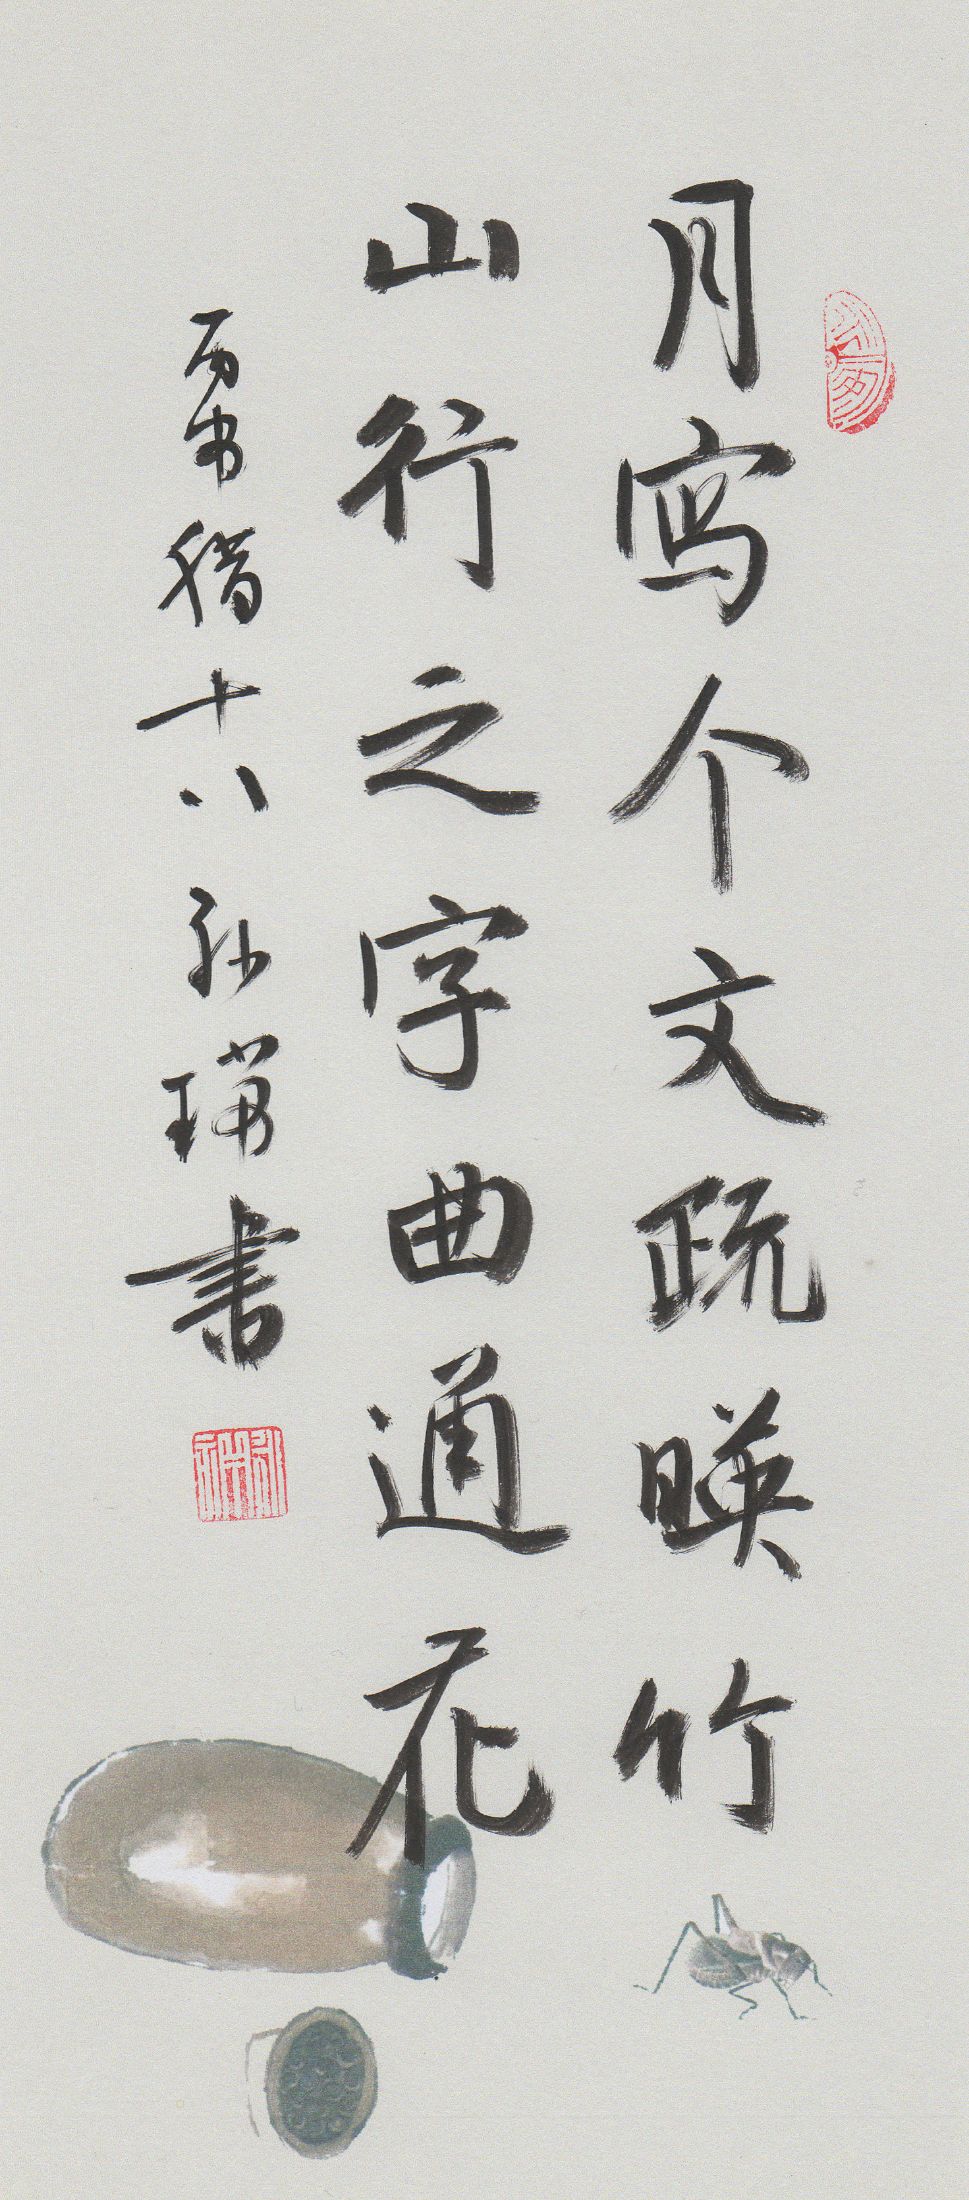 月写个文疏暎竹
山行之字曲通花
丙申腊十八 書